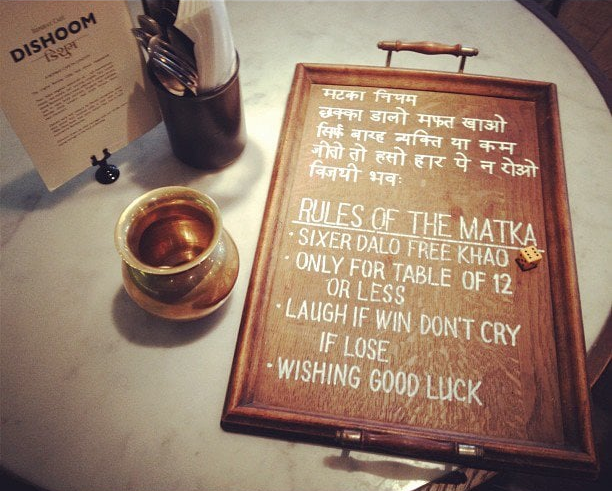 DISHOOM
दिशुम
मटका नियम
छक्का डालो मफत खाओ
सिर्फ बारह व्यक्ति या कम
जीतो तो हसो हार पे न रोओ
विजयी भवः
RULES OF THE MATKA
• SIXER DALO FREE KHAO
• ONLY FOR TABLE OF 12
OR LESS
• LAUGH IF WIN DON'T CRY
IF LOSE
• WISHING GOOD LUCK